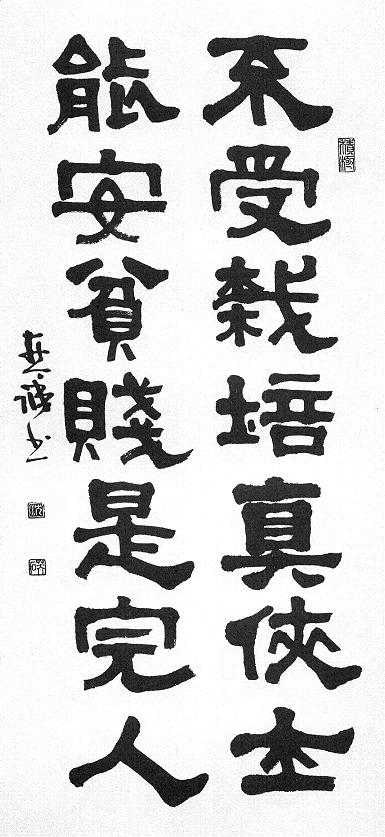 不受栽培真俠士
能安貧賤是完人